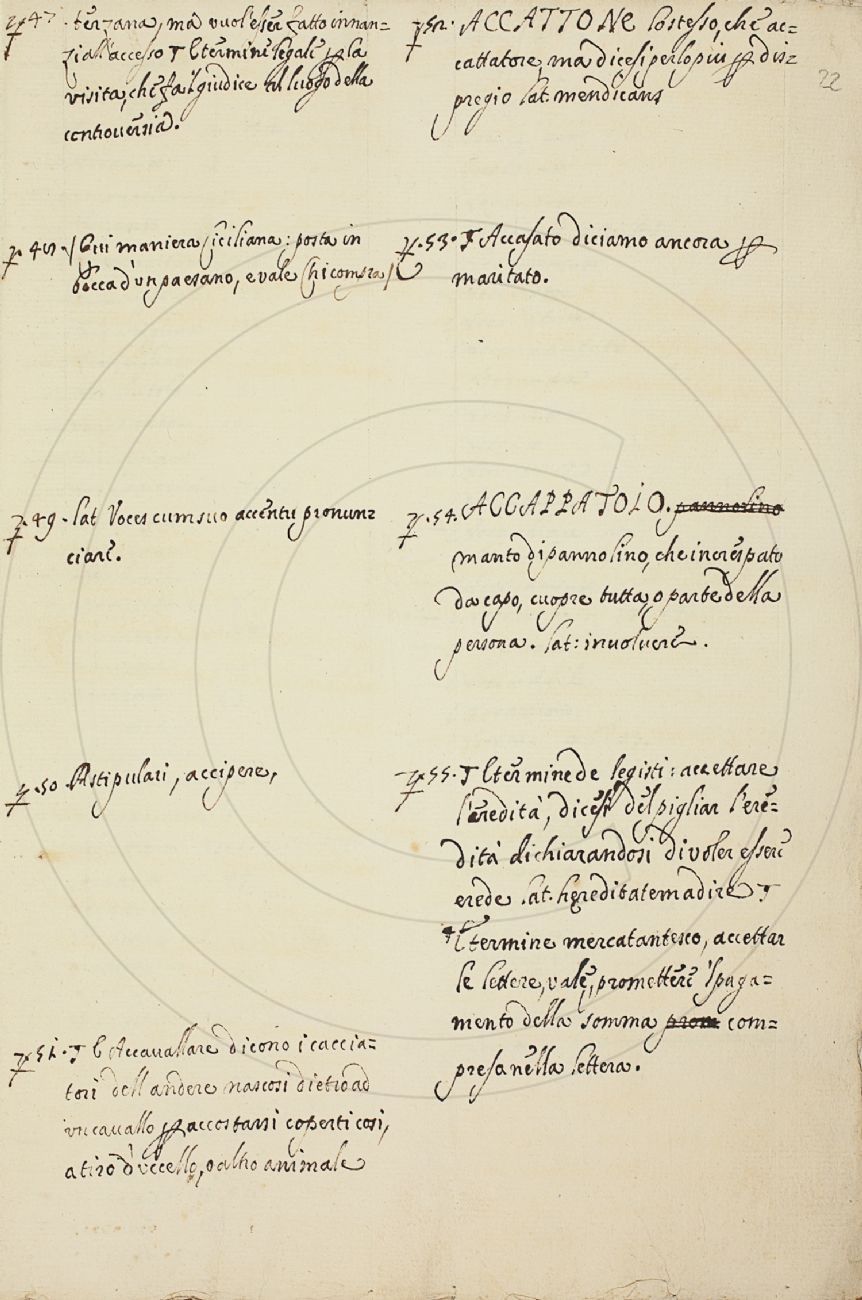 47. terzana, ma vuol'esser fatto innan=
zi all'accesso ¶ È termine legale p la
visita, che fa il giudice al luogo della
controuersia.
48. / È ui maniera siciliana: posta in
bocca d'un paesano, e vale
49. lat Voces cum suo accentu pronun=
ciare.
50. Astipulari, accipere,
51. ¶ E Accauallare dicono i caccia=
tori dell andere nascosi dietro ad
un cauallo p accostarsi coperti cosi,
a tiro d'uccello, o altro animale
52. ACCATTONE lo stesso, che ac=
cattatore, ma dicesi per lo piu p dis=
pregio lat. mendicans
22
53. ¶ Accasato diciamo ancora p
maritato.
54. ACCAPPATOIO. pannolino
manto di panno lino, che increspato
da capo, cuopre tutta, o parte della
persona. lat: inuolucre.
55. ¶ È termine de legisti: accettare
l'eredità, dicesi del pigliar l'ere=
dità dichiarandosi di voler essere
erede .lat. hereditatem adire ¶
È termine mercatantesco, accettar
le lettere, vale, promettere 'l paga=
mento della somma prom com=
presa nella lettera.